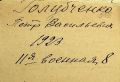 Голивченко
Петр Васильевич
1923
11я военная, 8